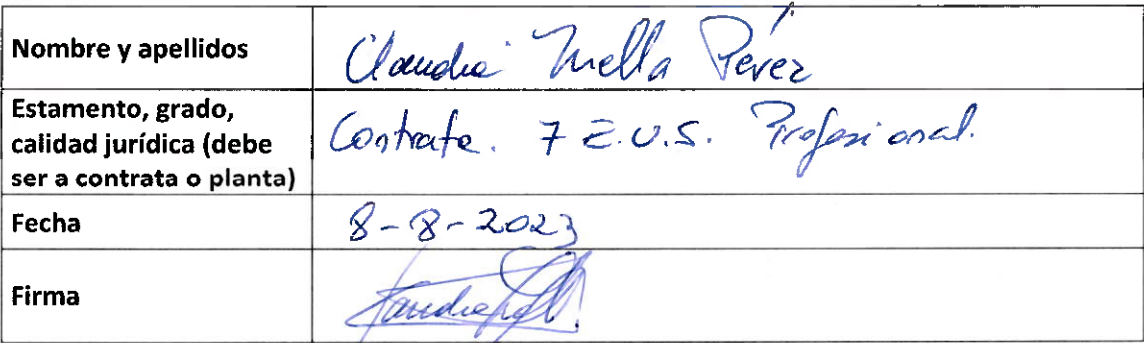 Nombre y apellidos
Claudia Mella Pérez
Estamento, grado,
calidad jurídica (debe
ser a contrata o planta)
Contrata. 7 E.U.S. Profesional.
Fecha
8-8-2023
Firma